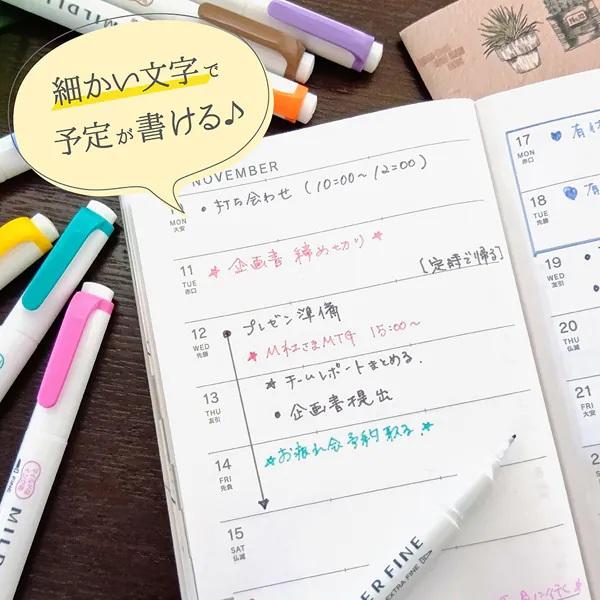 細かい文字で
予定が書ける♪
NOVEMBER
MON
大安
・打ち合わせ (10:00～12:00)
11
TUE
赤口
★企画書 締め切り★
[定時で帰る]
12
WED
先勝
●プレゼン準備
★M社さまMTG 15:00～
13
THU
友引
★チームレポートまとめる.
●企画書提出
14
FRI
先負
★お疲れ会予約取る.★
15
SAT
仏滅
17
MON
赤口
18
TUE
先勝
19
WED
友引
20
THU
21
FRI
大安
MILD
ER FINE
EXTRA FINE
FINE
MILDLI